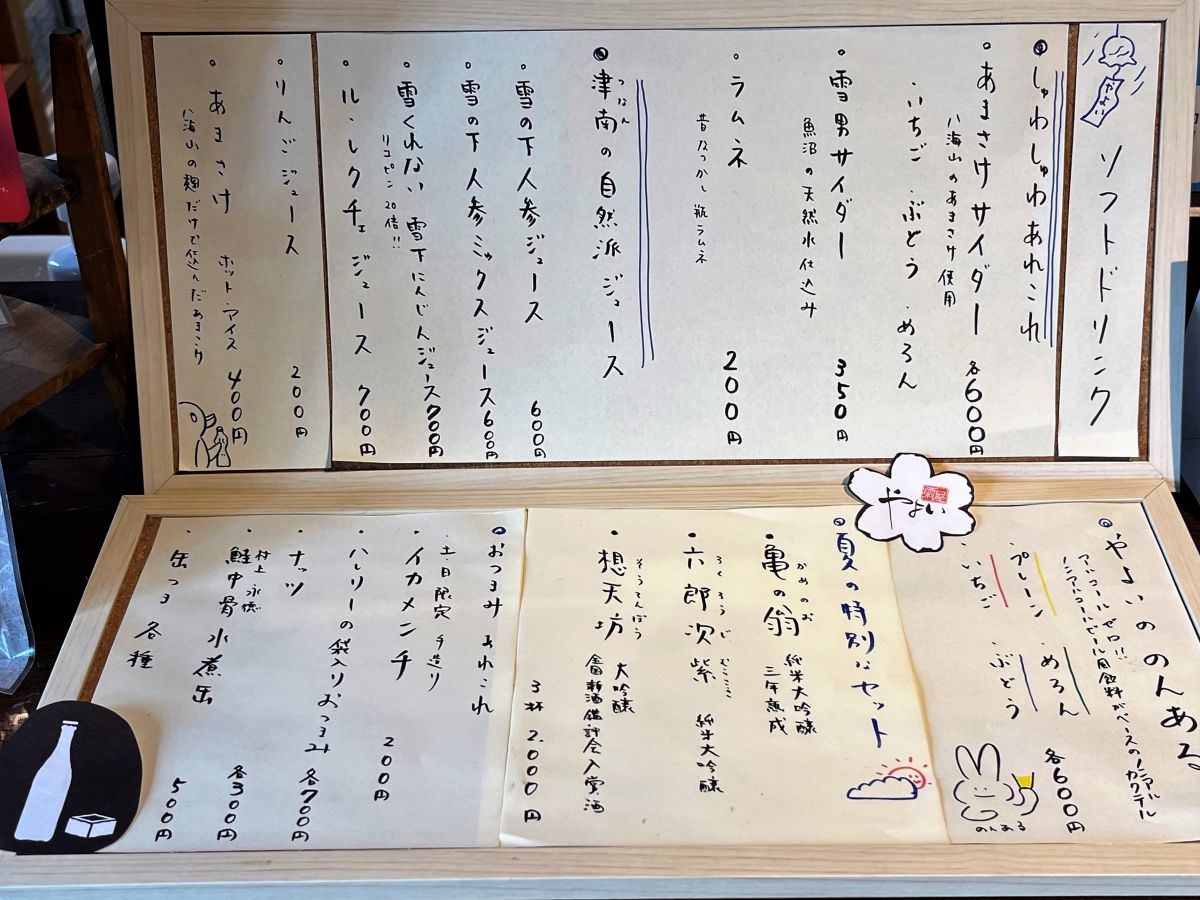 やよい
ソフトドリンク
しゅわしゅわあれこれ
あまさけサイダー 各600円
八海山のあまさけ使用
・いちご ・ぶどう ・めろん
雪男サイダー 350円
魚沼の天然水仕込み
ラムネ 200円
昔なつかし瓶ラムネ
津南の自然派ジュース
つなん
雪の下人参ジュース 600円
雪の下人参ミックスジュース 600円
雪くれない 雪下にんじんジュース 700円
リコピン20倍!!
ル・レクチェ ジュース 700円
りんごジュース 200円
あまさけ ホット・アイス 400円
八海山の麹だけで仕込んだあまさけ
やよい
酒
やよいののんある
アルコールゼロ!!
ノンアルコールビール風飲料がベースのノンアルカクテル
・プレーン ・めろん
・いちご ・ぶどう
各600円
のんある
夏の特別なセット
亀の翁 純米大吟醸 三年熟成
かめのお
六郎次 紫 純米大吟醸
ろくろうじ むらさき
想天坊 大吟醸
そうてんぼう
全国新酒鑑評会入賞酒
3杯 2,000円
おつまみ あれこれ
土・日限定 手造り
イカメンチ 200円
ハレリーの袋入りおつまみ
ナッツ 各700円
村上 永徳
鮭中骨水煮缶 各300円
缶つま 各種 500円